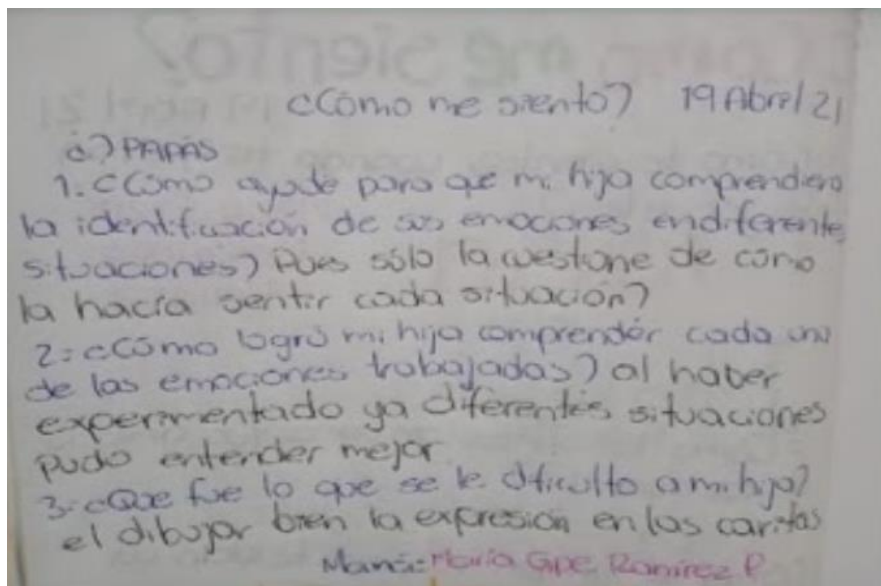 ¿Cómo me siento? 19 Abril 21
a) PAPÁS
1. ¿Cómo ayude para que mi hija comprendiera
la identificación de sus emociones en diferente
situaciones? Pues sólo la cuestione de cómo
la hacía sentir cada situación?
2: ¿Cómo logró mi hija comprender cada una
de las emociones trabajadas? al haber
experimentado ya diferentes situaciones
pudo entender mejor
3.- ¿Que fue lo que se le dificulto a mi hija?
el dibujar bien la expresión en las caritas
Mamá: María Gpe Ramírez P.